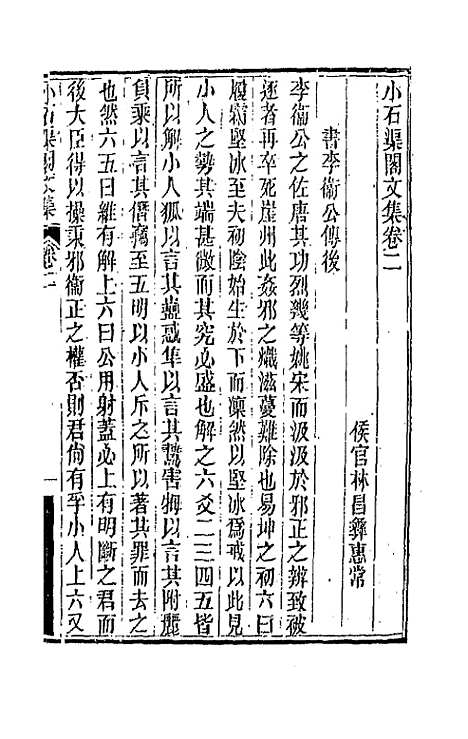 小石渠閣文集卷二
侯官林昌彝惠常
書李衞公傳後
李衞公之佐唐其功烈幾等姚宋而汲汲於邪正之辨致被
逐者再卒死崖州此姦邪之熾滋蔓難除也易坤之初六曰
履霜堅冰至夫初陰始生於下而凜然以堅冰爲戒以此見
小人之勢其端甚微而其究必盛也解之六爻二三四五皆
所以解小人狐以言其蠱惑隼以言其鷙害拇以言其附麗
負乘以言其僭竊至五明以小人斥之所以著其罪而去之
也然六五曰維有解上六曰公用射蓋必上有明斷之君而
後大臣得以操秉邪衞正之權否則君尙有孚小人上六又
小石渠閣文集
卷二
一